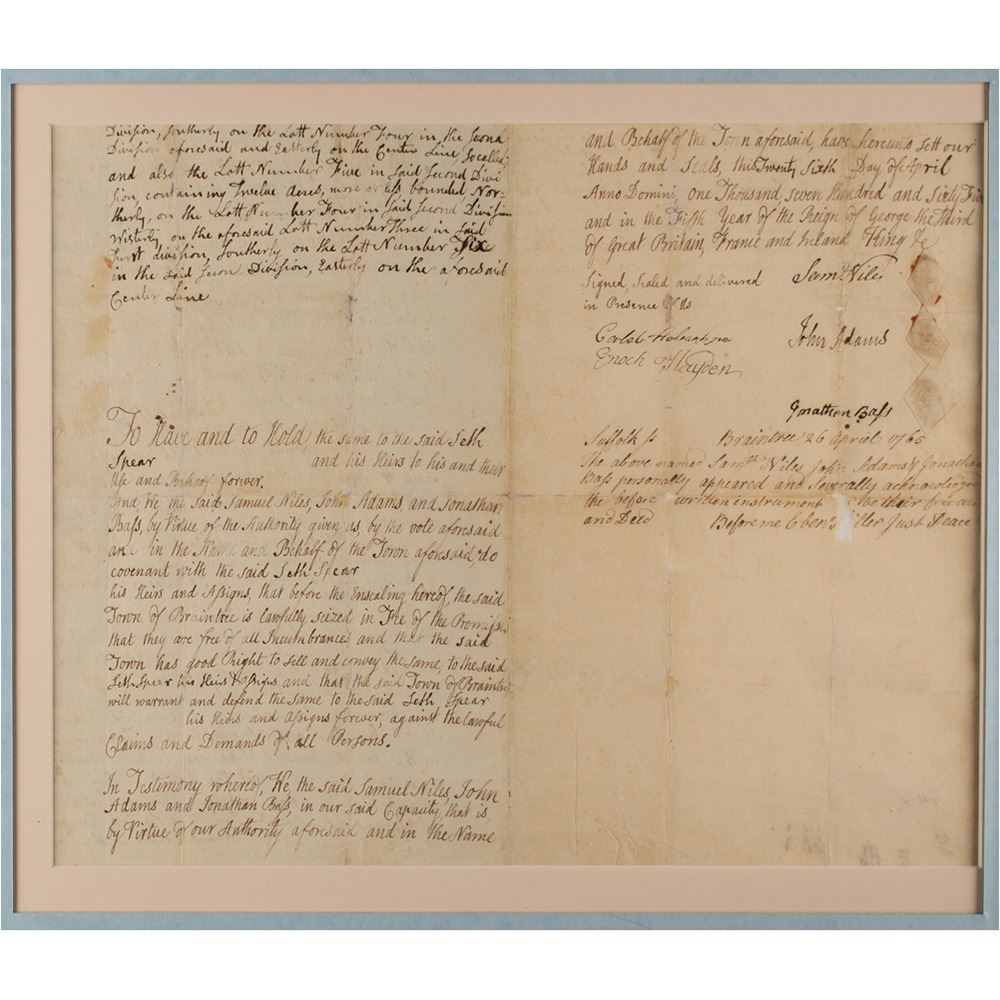 Division, Southerly on the Lott Number Four in the Second
Division aforesaid and Easterly on the Center Line, so called
and also the Lott Number Five in said Second Divi
sion, containing Twelve Acres, more or less bounded Nor:
therly, on the Lott Number Four in said Second Division
Westerly, on the aforesaid Lott Number Three in said
first Division, Southerly on the Lott Number Six
in the said Secon Division, Easterly on the aforesaid
Center Line
To Have and to Hold, the same to the said Seth
Spear and his Heirs to his and their
Use and Behoof forever.
And We the said Samuel Niles, John Adams, and Jonathan
Baſs, by Virtue of the Authority given us, by the vote aforesaid
and in the Name and Behalf of the Town aforesaid, do
covenant with the said Seth Spear
his Heirs and Aſsigns, that before the Ensealing hereof, the said
Town of Braintree is lawfully seized in Fee of the Premises
that they are free of all Incumbrances and that the said
Town has good Right to sell and convey the same, to the said
Seth Spear his Heirs & Aſsigns and that the said Town of Braintree
will warrant and defend the same to the said Seth Spear
his Heirs and Aſsigns forever, against the lawful
Claims and Demands of all Persons.
In Testimony whereof, We, the said Samuel Niles, John
Adams and Jonathan Baſs, in our said Capacity, that is
by Virtue of our Authority aforesaid and in the Name
and Behalf of the Town aforesaid, have hereunto sett our
Hands and Seals, this Twenty Sixth Day of April
Anno Domini, one Thousand, seven Hundred and Sixty Five
and in the Fifth Year of the Reign of George the Third
of Great Britain, France and Ireland King &c
Signed, Sealed and delivered
in Presence of Us
Saml. Niles
John Adams
Enoch Hayden
Jonathan Baſs
Suffolk ſs Braintree 26 April 1765
The above named Samll Niles John Adams & Jonathan
Baſs personally appeared and Severally acknowledged
the before written instrument to be their free act
and Deed Before me Eben Miller Just Peace